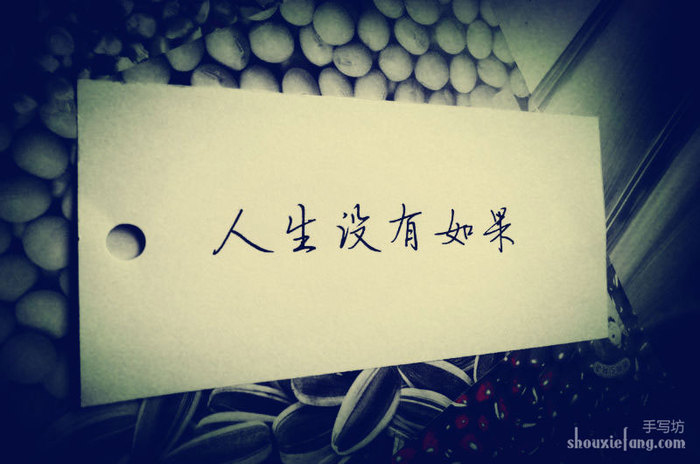 人生没有如果
手写坊
shouxiefang.com